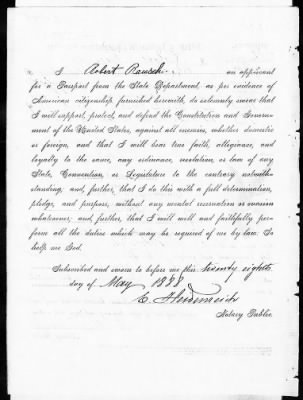 I Robert Rausch an applicant
for a Passport from the State Department, as per evidence of
American citizenship furnished herewith, do solemnly swear that
I will support, protect, and defend the Constitution and Govern-
ment of the United States, against all enemies, whether domestic
or foreign, and that I will bear true faith, allegiance, and
loyalty to the same, any ordinance, resolution, or law of any
State, Convention, or Legislature to the contrary notwith-
standing; and, further, that I do this with a full determination,
pledge, and purpose, without any mental reservation or evasion
whatsoever; and, further, that I will well and faithfully per-
form all the duties which may be required of me by law. So
help me God.
Subscribed and sworn to before me this twenty eighth
day of May 1888
Notary Public.